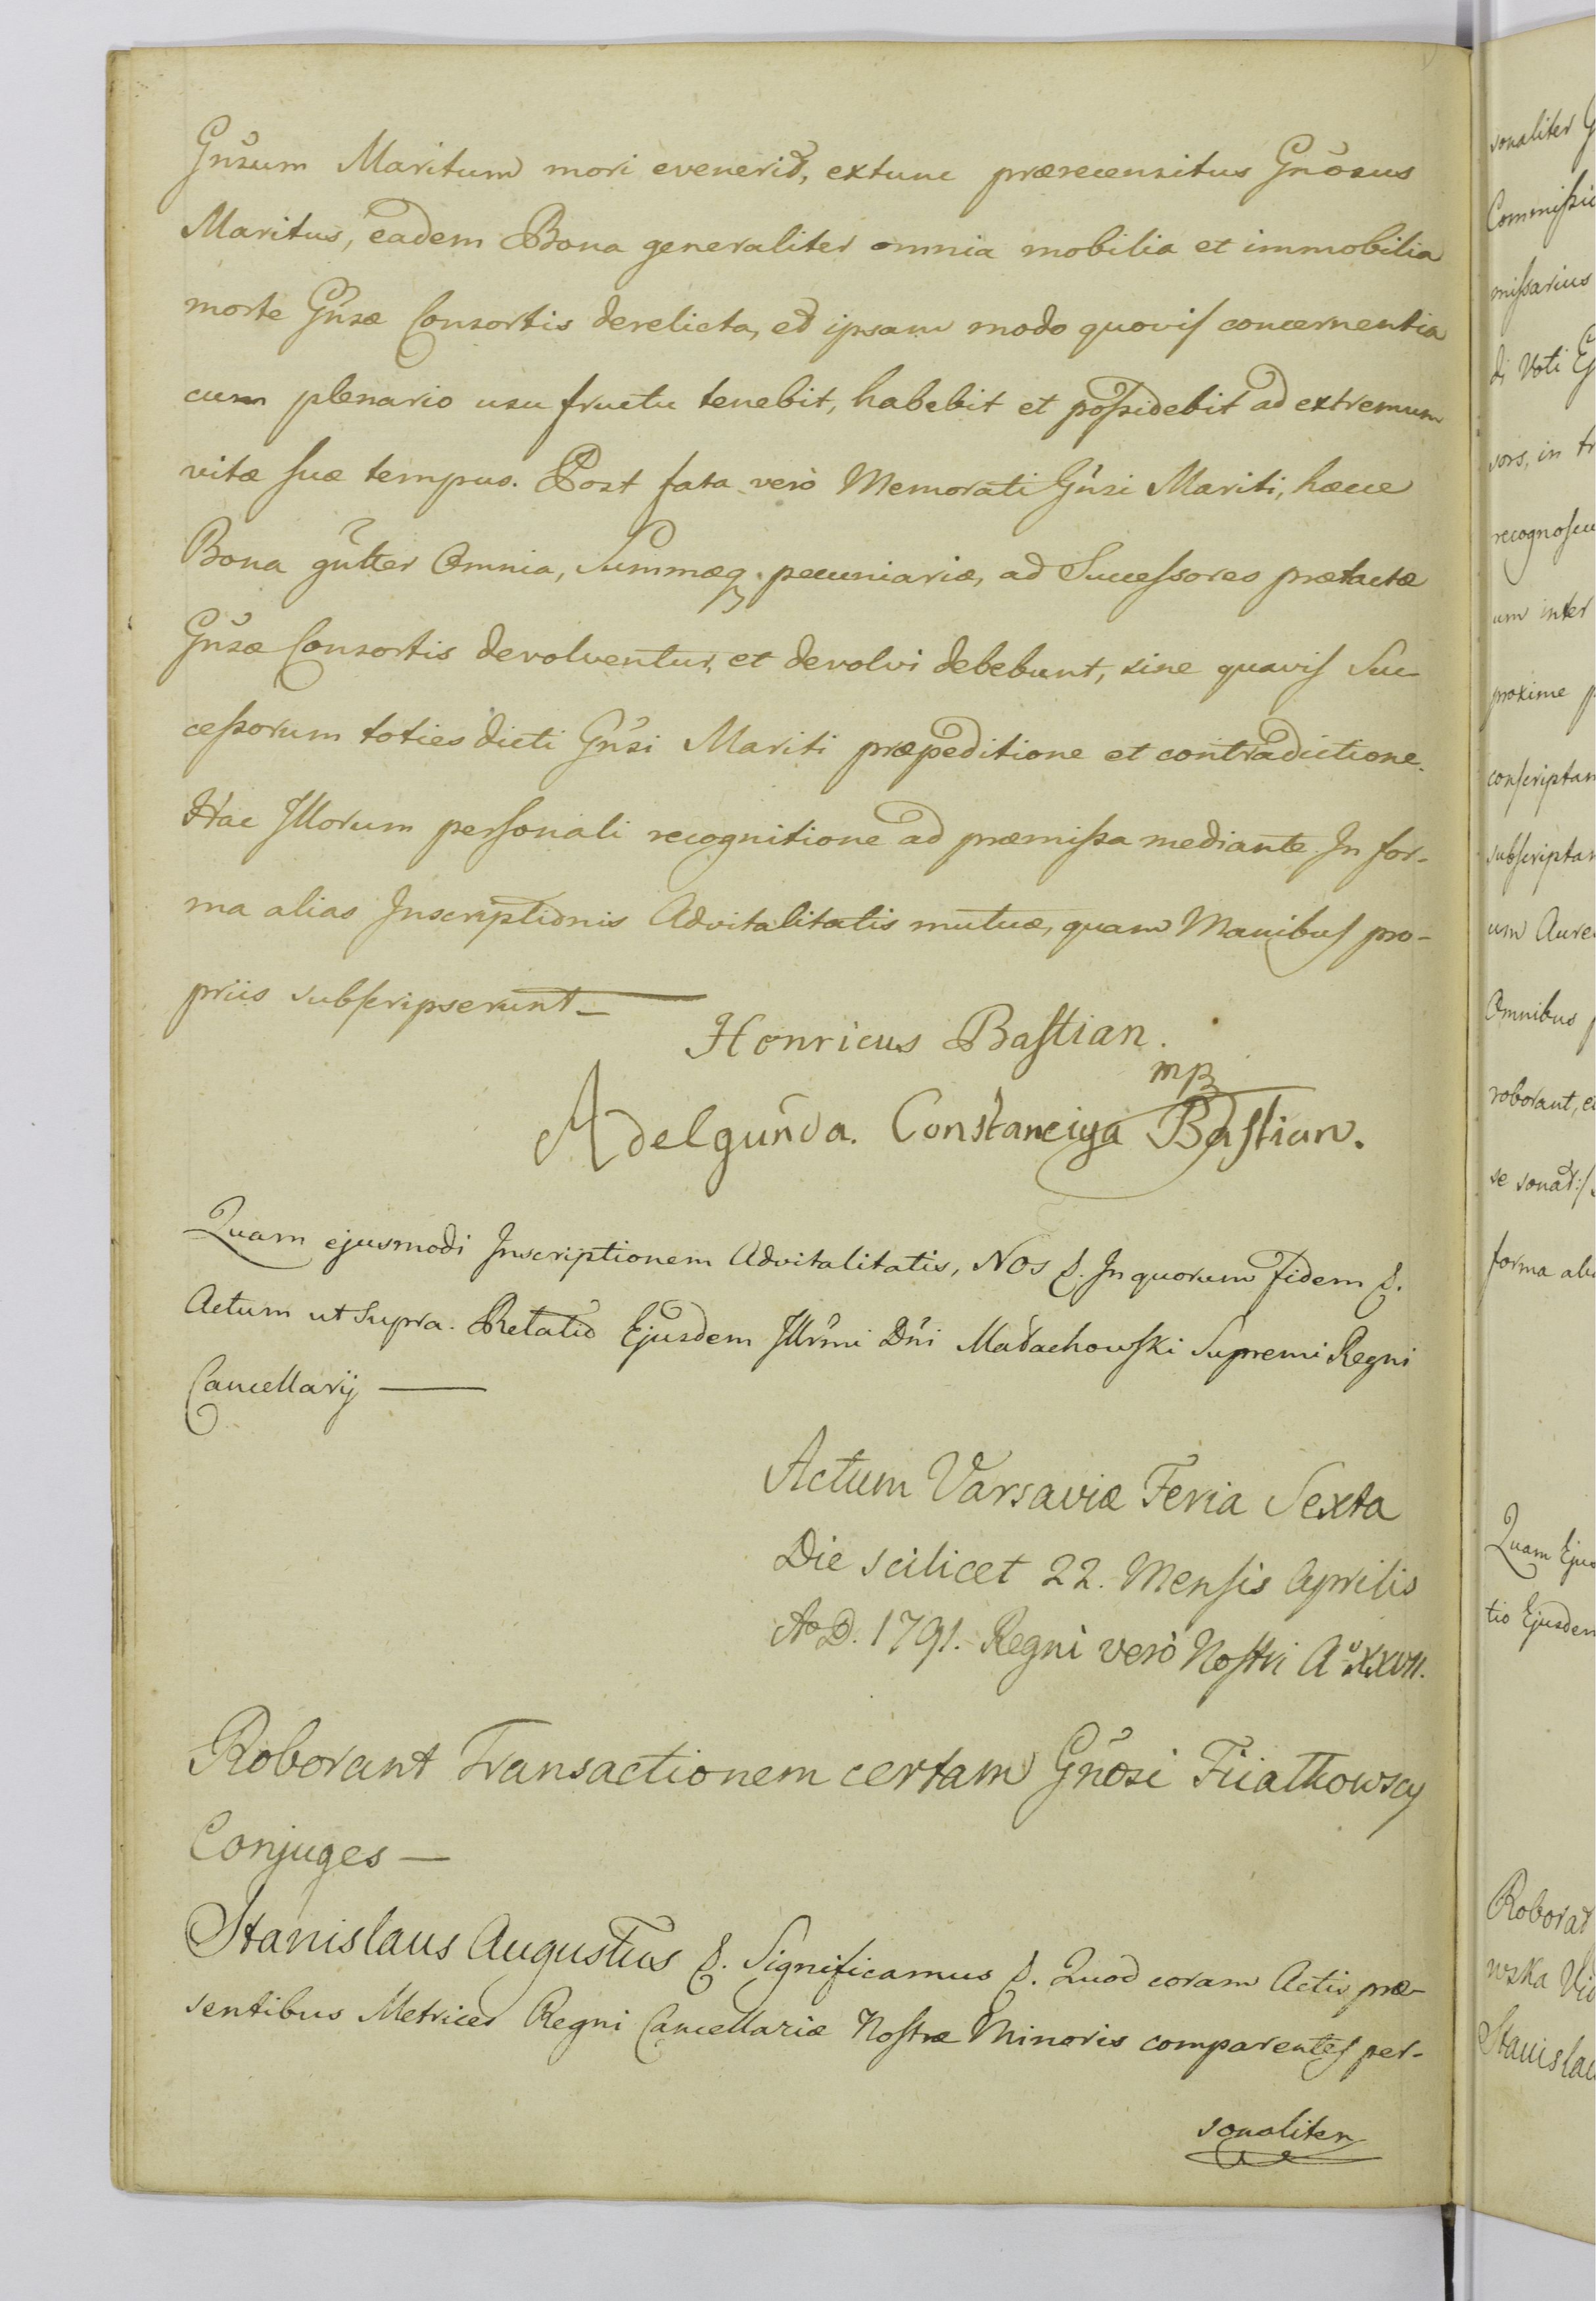 Gnsum Maritum mori evenerit, extunc prærecensitus Gnosus
Maritus, eadem Bona generaliter omnia mobilia et immobilia
morte Gnsæ Consortis derelicta, et ipsam modo quovis concernentia
cum plenario usu fructu tenebit, habebit et possidebit ad extremum
vitæ suæ tempus. Post fata verò Memorati Gnsi Mariti, hæcce
Bona gnlter Omnia, Summæq. pecuniariæ, ad Successores prætactæ
Gnsæ Consortis devolventur, et devolvi debebunt, sine quavis Suc-
cessorum toties dicti Gnsi Mariti præpeditione et contradictione.
Hac Illorum personali recognitione ad præmissa mediante. In for-
ma alias Inscriptionis Advitalitatis mutuæ, quam Manibus pro-
priis subscripserunt —
Honricus Bastian.
mp
Adelgunda. Constanciya Bastian.
Quam ejusmodi Inscriptionem Advitalitatis, Nos &. In quorum fidem &.
Actum ut supra. Relatio Ejusdem Illrmi Dni Małachowski Supremi Regni
Cancellarij —
Actum Varsaviæ Feria Sexta
Die scilicet 22. Mensis Aprilis
Ao D. 1791. Regni verò Nostri Ao XXVII.
Roborant Transactionem certam Gnosi Fiiatkowscy
Conjuges —
Stanislaus Augustus &. Significamus &. Quod coram Actis præ-
sentibus Metrices Regni Cancellariæ Nostræ Minoris comparentes per-
sonaliter
sonaliter
Commissio
missarius
di Voti
sors, in
recognoscu
um inter
proxime
conscriptam
subscriptam
um Aure
Omnibus
roborant,
se sonat:
forma ali
Quam Ejus
tio Ejusdem
Roborat
wska Vid
Stanislau